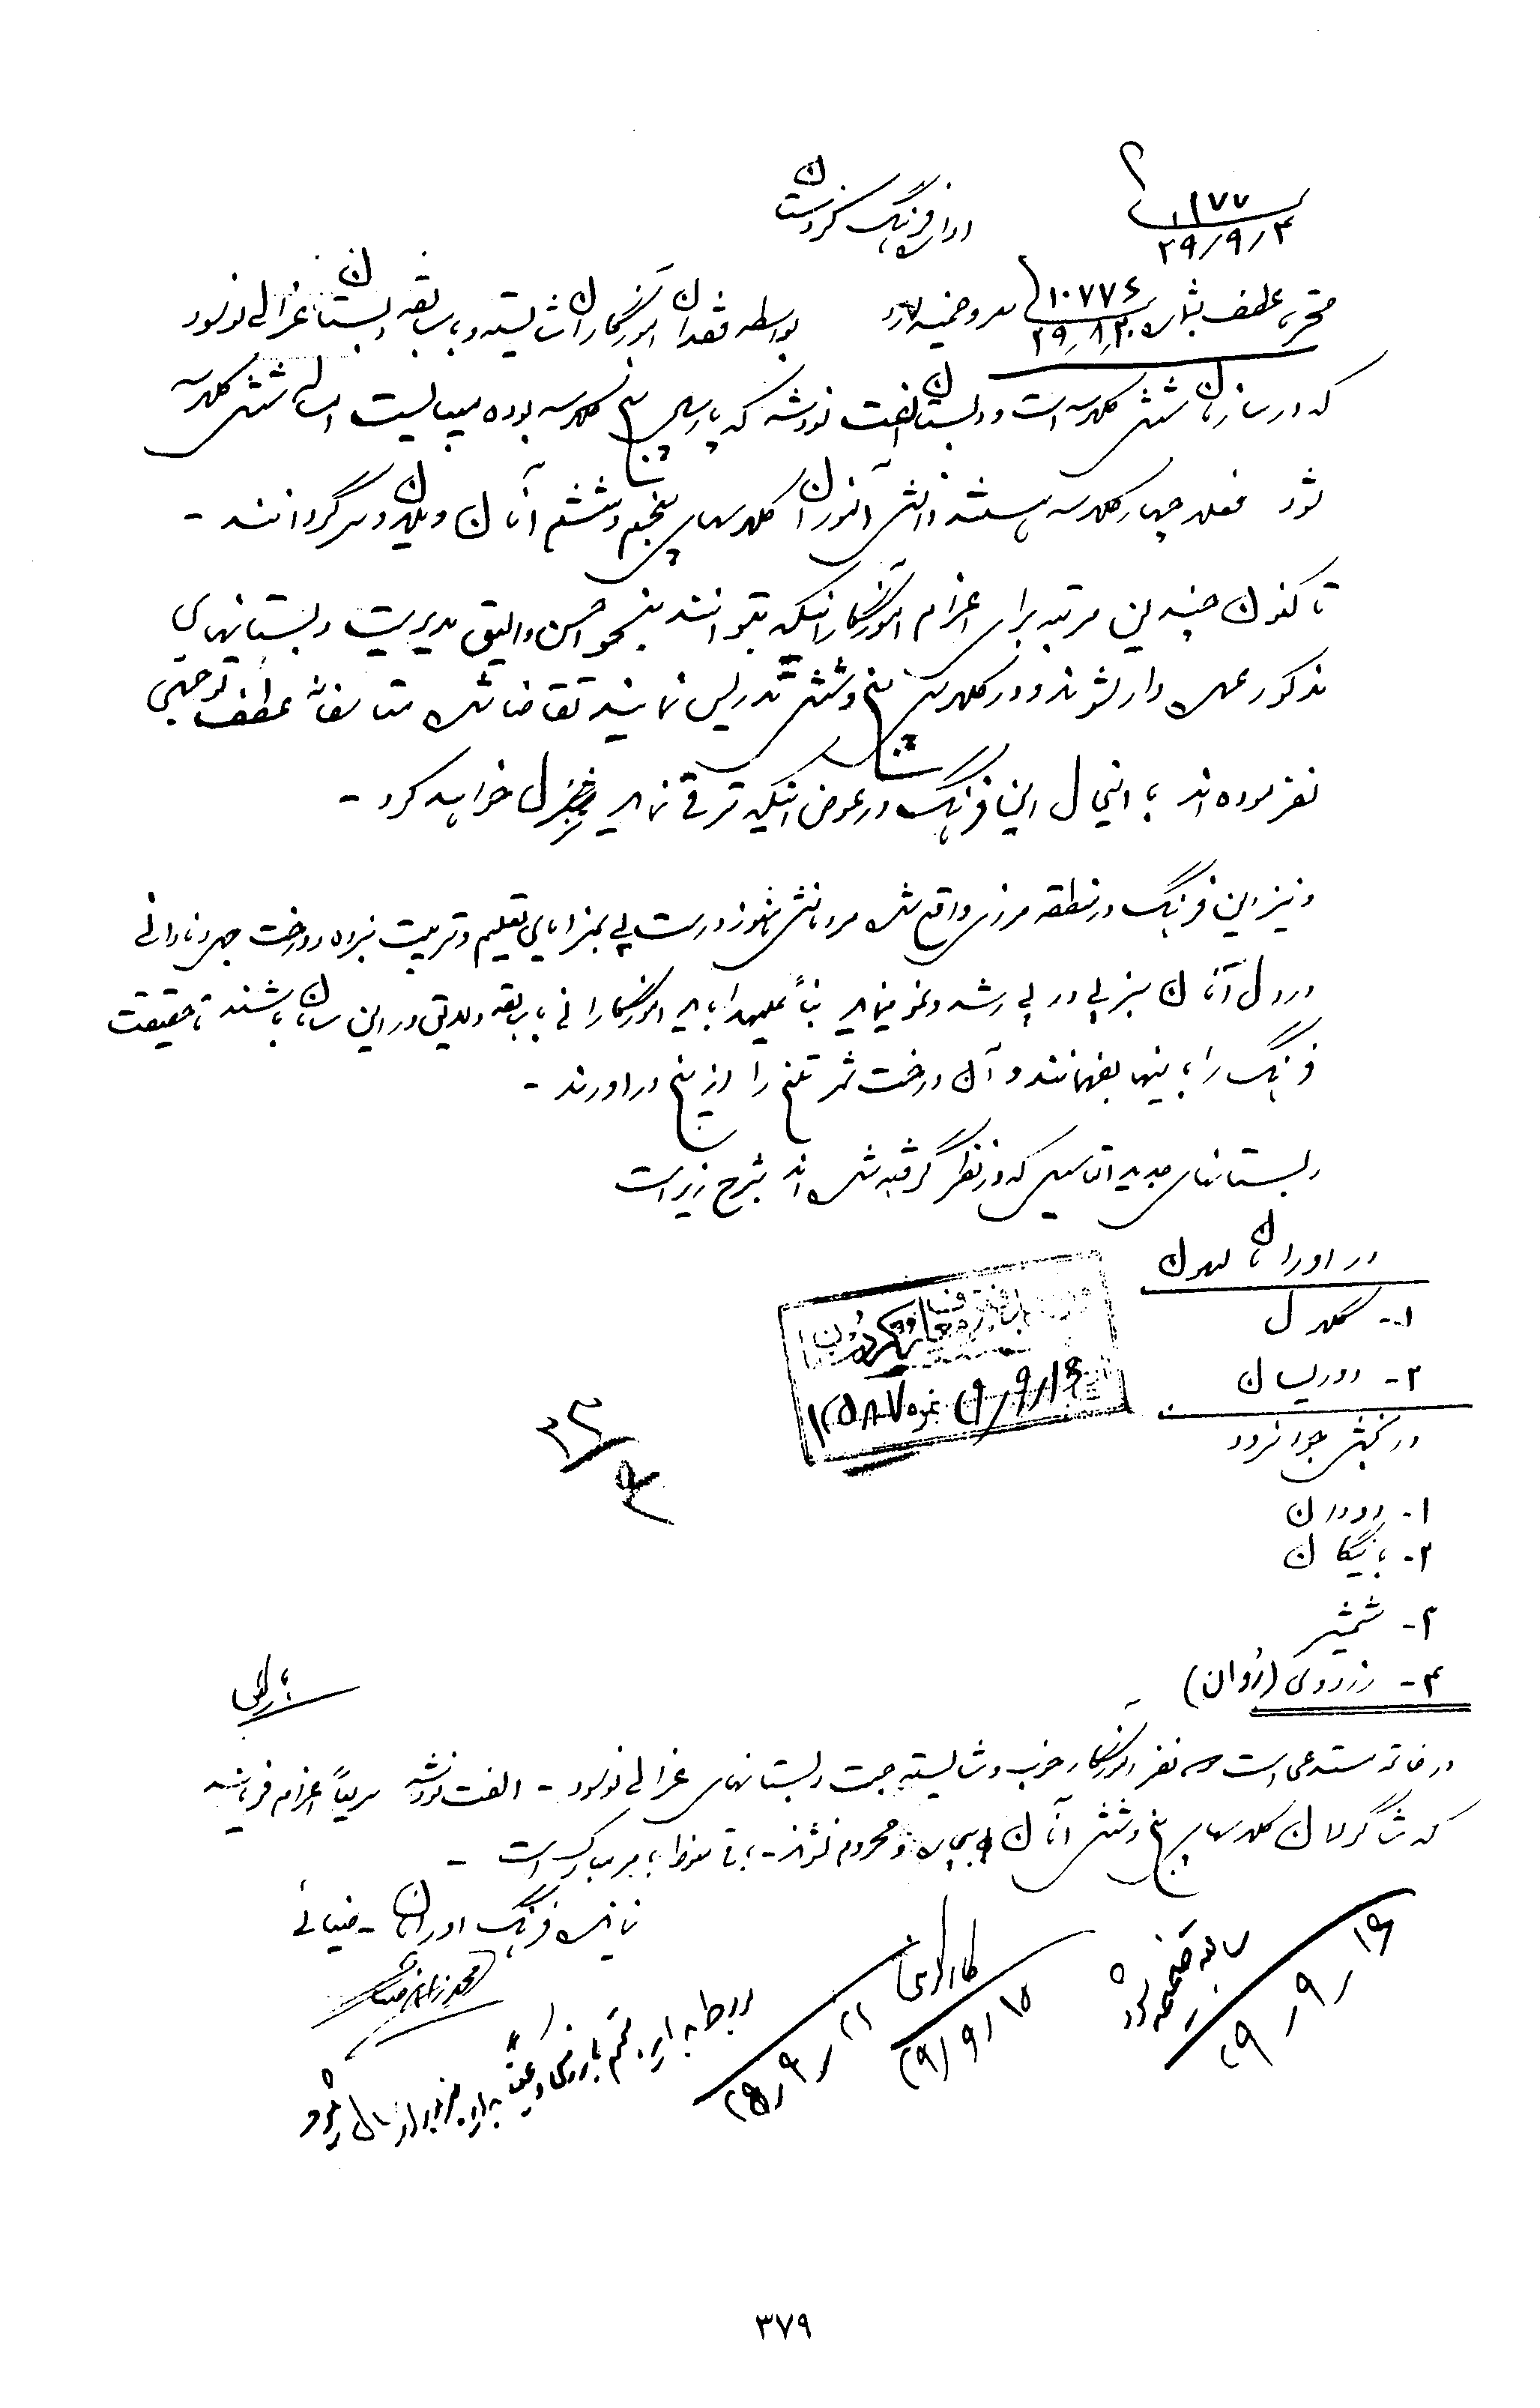 ۱۱۷۷
۲۹/۹/۴
اداره فرهنگ کردستان
محترما عطف بشماره ۱۰۷۷۴ ۲۹/۸/۳۰ بواسطه فقدان آموزگاران شایسته و با سابقه دبستان غزالی نوسود
که در سازمان شش کلاسه است و دبستان الفت نودشه که پارسال پنج کلاسه بوده میبایست امسال شش کلاسه
شود فعلا چهار کلاسه هستند دانش آموزان کلاسهای پنجم و ششم آنان ویلان و سرگردانند -
تا کنون چندین مرتبه برای اعزام آموزگارانیکه بتوانند بنحو احسن و الیق مدیریت دبستانهای
مذکور عهده دار شوند و در کلاس پنج و شش تدریس نمایند تقاضا شده متاسفانه عطف توجهی
نفرموده اند با اینحال این فرهنگ در عوض اینکه ترقی نماید تنزل خواهد کرد -
و نیز این فرهنگ در منطقه مرزی واقع شده مردمانش هنوز درست پی بمزایای تعلیم و تربیت نبرده درخت جهل و نادانی
در دل آنان سبز پی در پی رشد و نمو مینماید بناء علیهذا باید آموزگارانی با سابقه و لایق در این سامان باشند تا حقیقت
فرهنگ را باینها بفهمانند و آن درخت ثمر تلخ را از بیخ درآورند -
دبستانهای جدید التاسیس که در نظر گرفته شده اند بشرح زیر است
در اورامان لهون
۱- کلال
۲- دوریسان
در بخش جوانرود
۱- رودان
۲- بانیگان
۳- شمشیر
۴- زردوئی (روان)
بایگانی
در خاتمه مستدعی است سه نفر آموزگار خوب و شایسته جهت دبستانهای غزالی نوسود - الفت نودشه سریعاً اعزام فرمائید
که شاگردان کلاسهای پنج و شش آنان بیچاره و محروم نشوند - باقی منوط بامر مبارک است -
نماینده فرهنگ اورامان - ضیائی
۲۹/۹/۱۶ ۱۲۵۸۷
سابقه ضمیمه شود
۲۹/۹/۱۶
کارگزینی
۲۹/۹/۱۵
۲۹/۹/۲۱
۳۷۹